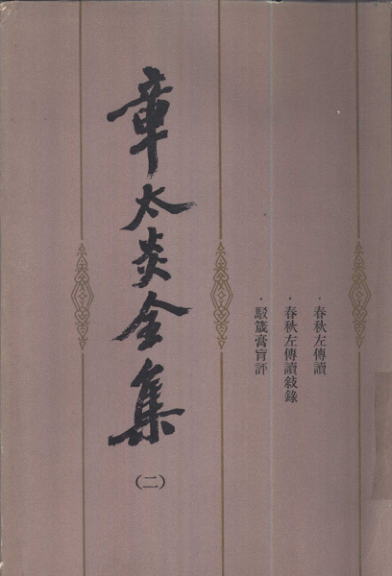 章太炎全集
(二)
·春秋左傳讀
·春秋左傳讀敍錄
·駁箴膏肓評